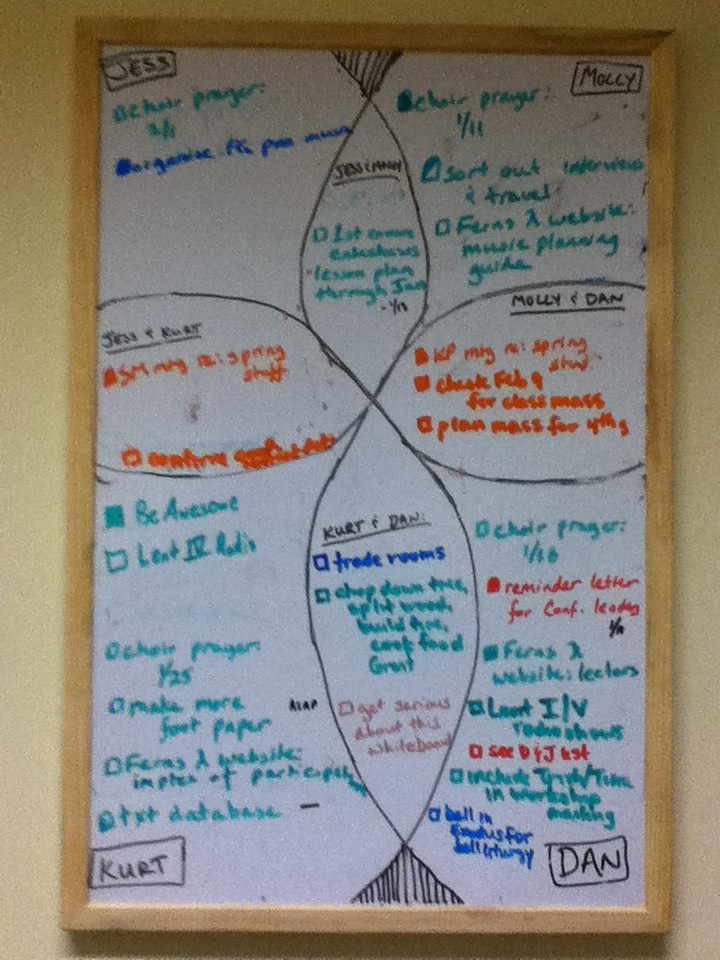 JESS
choir prayer:
2/1
organize
JESS & MOLLY
1st comm
lesson plan
through Jan
MOLLY
choir prayer:
1/11
sort out interviews
& travel
Ferns & website:
music planning
guide
JESS & KURT
SM mtg re: spring
stuff
confirm
MOLLY & DAN
KP mtg re: spring
stuff
check Feb 9
for class mass
plan mass for 4thg
Be Awesome
Lent IV Radio
choir prayer:
1/25
make more
font paper
Ferns & website:
of
txt database –
KURT
KURT & DAN:
trade rooms
chop down tree,
split wood,
build fire,
cook food
Grunt
ASAP
get serious
about this
whiteboard
choir prayer:
1/18
reminder letter
for Conf. leaders
Ferns &
website: lectors
Lent I/V
radio shows
see
include Truth/Time
in workshop
mailing
ball in
Exodus for
DAN